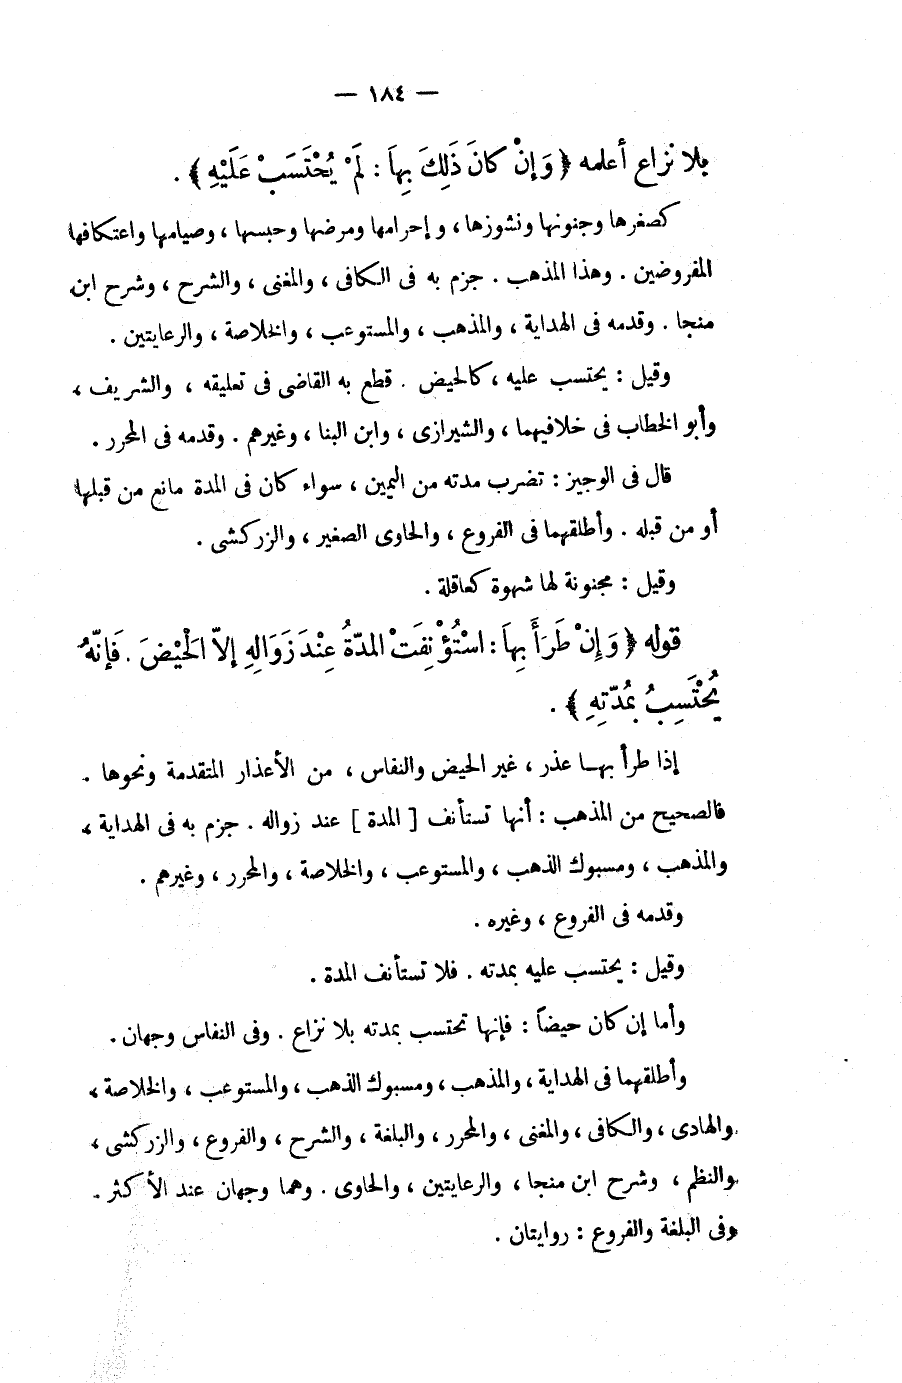 — ١٨٤ —
بلا نزاع أعلمه ﴿ وَإِنْ كانَ ذَلِكَ بِهاَ : لَمْ يُحْتَسَبْ عَلَيْهِ ﴾ .
كصغرها وجنونها ونشوزها ، وإحرامها ومرضها وحبسها ، وصيامها واعتكافها
المفروضين . وهذا المذهب . جزم به فى الكافى ، والمغنى ، والشرح ، وشرح ابن
منجا . وقدمه فى الهداية ، والمذهب ، والمستوعب ، والخلاصة ، والرعايتين .
وقيل : يحتسب عليه ، كالحيض . قطع به القاضى فى تعليقه ، والشريف ،
وأبو الخطاب فى خلافيهما ، والشيرازى ، وابن البنا ، وغيرهم . وقدمه فى المحرر .
قال فى الوجيز : تضرب مدته من اليمين ، سواء كان فى المدة مانع من قبلها
أو من قبله . وأطلقهما فى الفروع ، والحاوى الصغير ، والزركشى .
وقيل : مجنونة لها شهوة كعاقلة .
قوله ﴿ وَإِنْ طَرَأَ بِهاَ : اسْتُؤْنِفَتْ المدّةُ عِنْدَ زَوَالِهِ إلاّ الَحْيْضَ . فَإنّهُ
يُحْتَسِبُ بمُدّتِهِ ﴾ .
إذا طرأ بهـا عذر ، غير الحيض والنفاس ، من الأعذار المتقدمة ونحوها .
فالصحيح من المذهب : أنها تستأنف [ المدة ] عند زواله . جزم به فى الهداية ،
والمذهب ، ومسبوك الذهب ، والمستوعب ، والخلاصة ، والمحرر ، وغيرهم .
وقدمه فى الفروع ، وغيره .
وقيل : يحتسب عليه بمدته . فلا تستأنف المدة .
وأما إن كان حيضاً : فإنها تحتسب بمدته بلا نزاع . وفى النفاس وجهان .
وأطلقهما فى الهداية ، والمذهب ، ومسبوك الذهب ، والمستوعب ، والخلاصة ،
والهادى ، والكافى ، والمغنى ، والمحرر ، والبلغة ، والشرح ، والفروع ، والزركشى ،
والنظم ، وشرح ابن منجا ، والرعايتين ، والحاوى . وهما وجهان عند الأكثر .
وفى البلغة والفروع : روايتان .